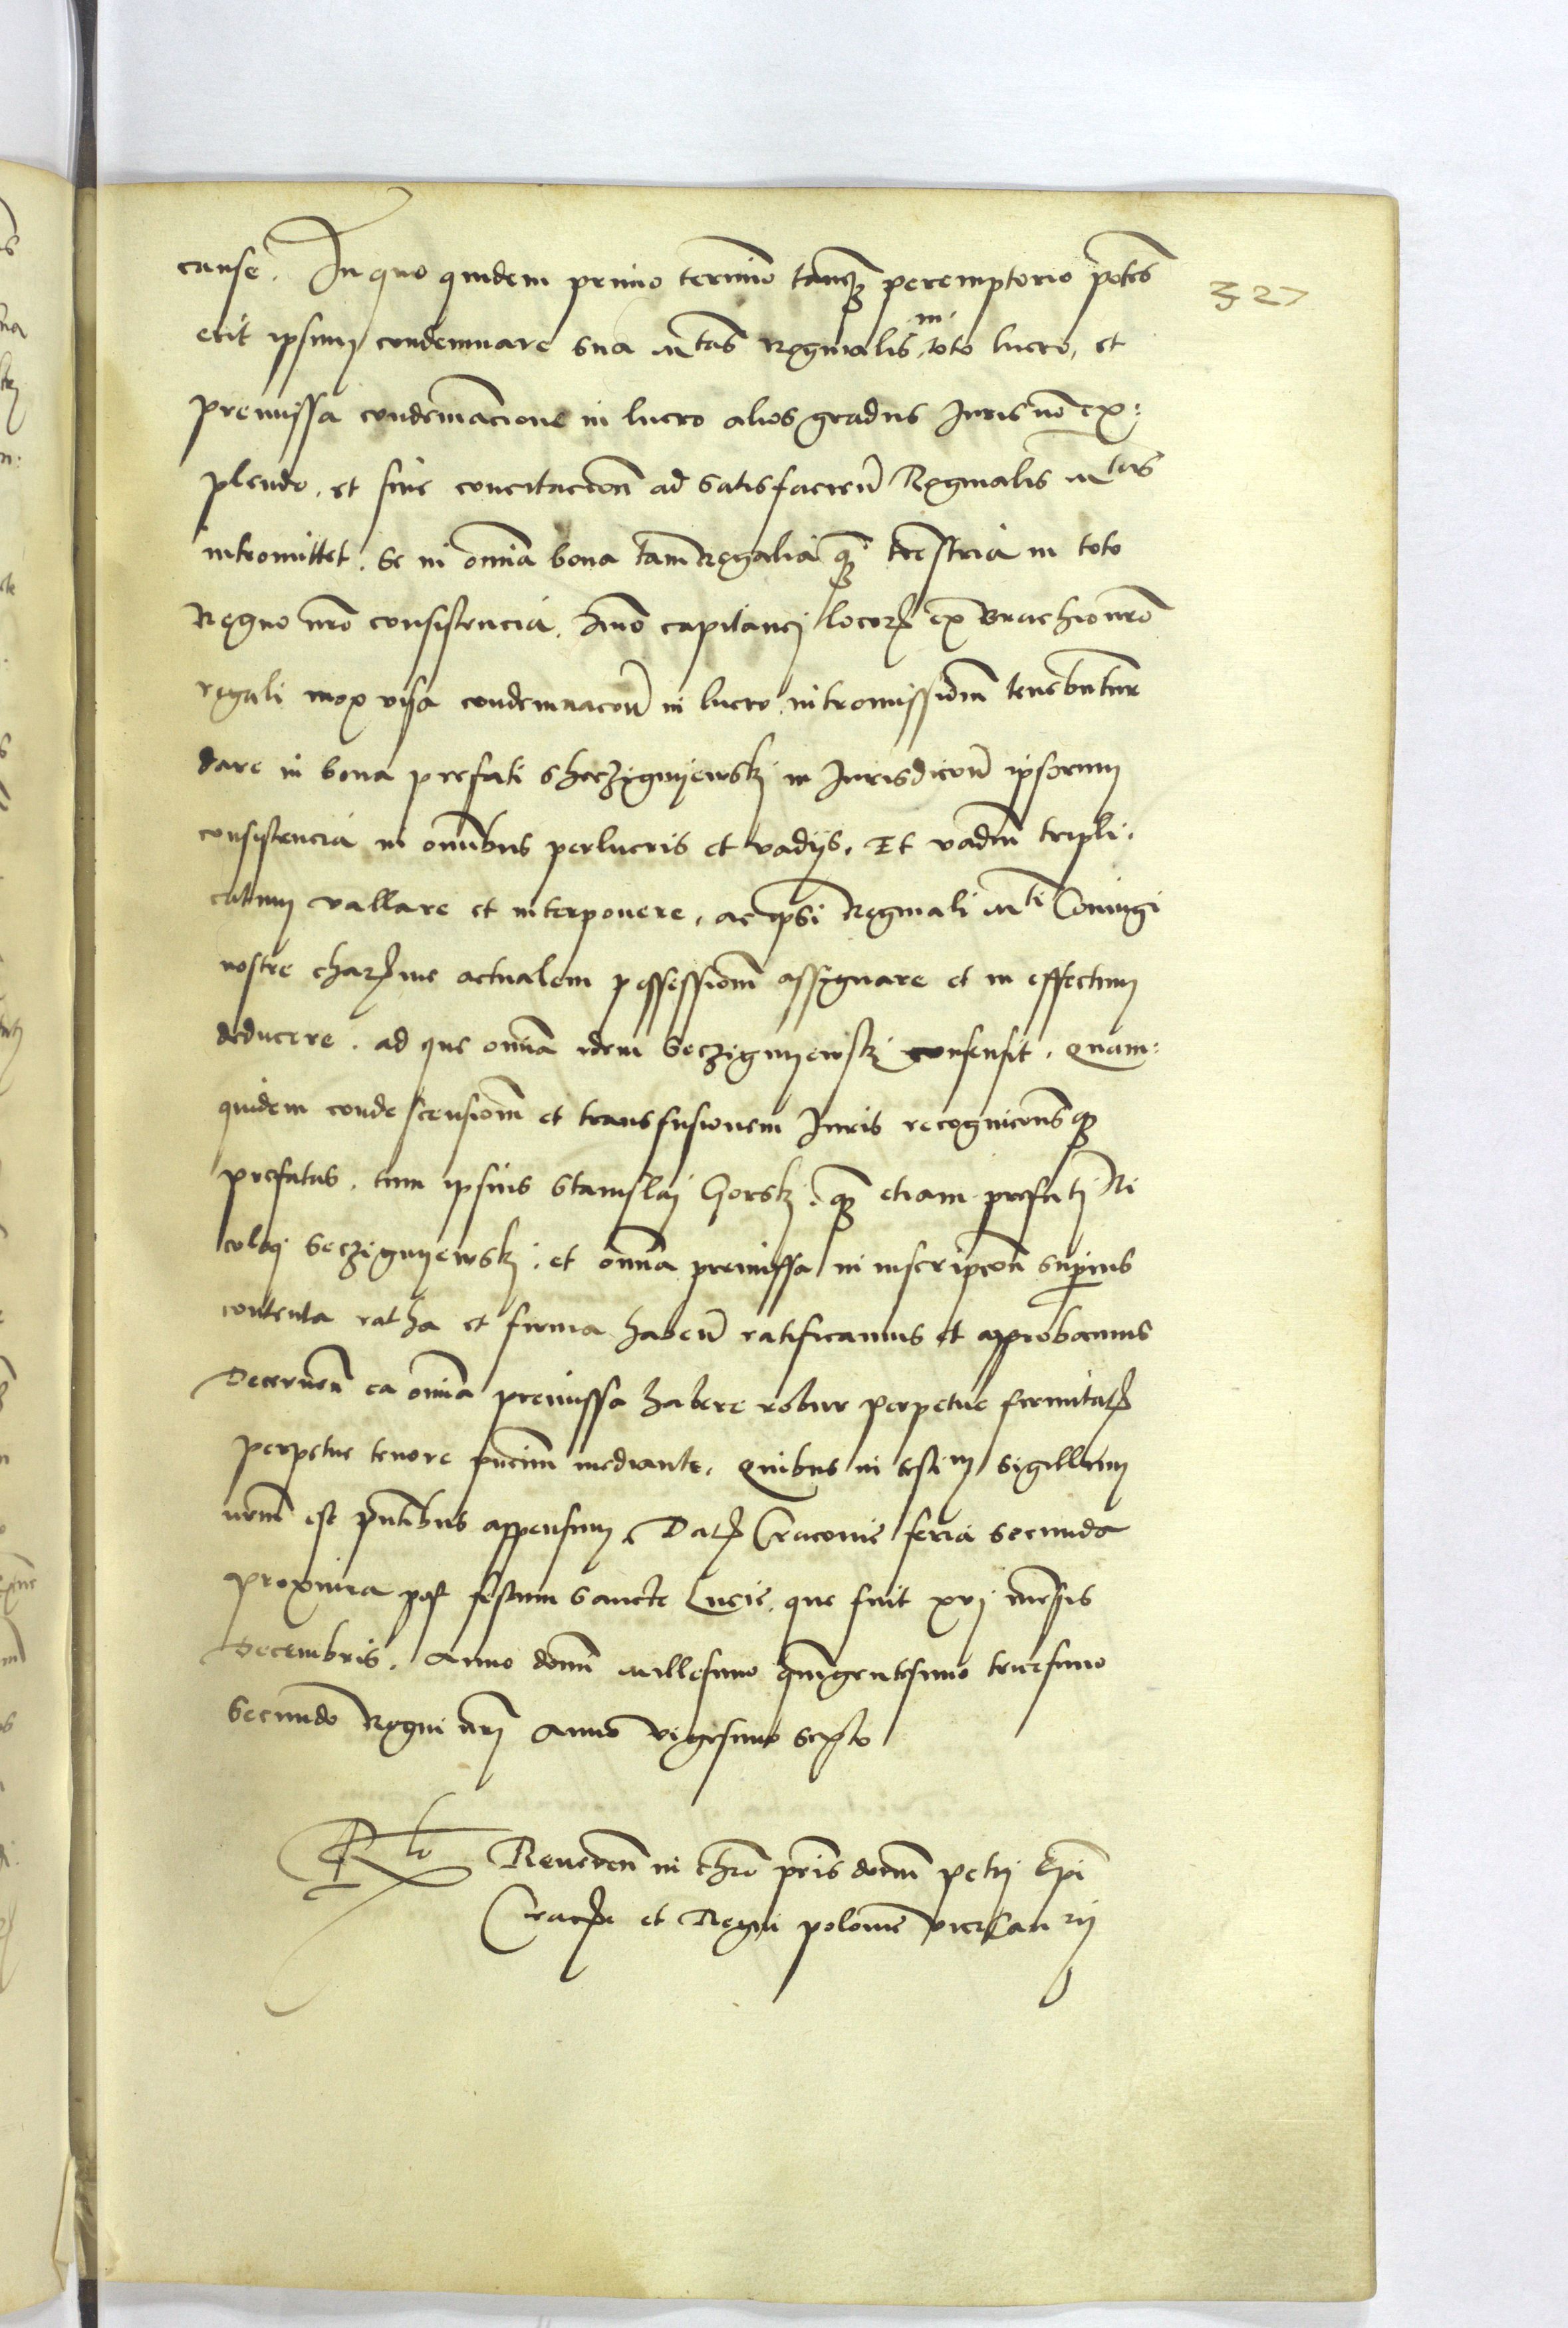 cause. In quo quidem primo termino tamq̃ȝ peremptorio potes
327
erit ipsum condemnare sua Mtas Reginalis in toto lucro, et
premissa condemnacione in lucro alios gradus Iuris nõ ex:
plendo, et sine concitacione ad satisfacienũ Reginalis Mtis
intromittet. Se in omnia bona tam Regalia q̃ȝ trestria in toto
Regno nrõ consistencia. Imo capitanej locorȝ ex brachio nrõ
regali mox visa condemnacoñ in lucro intromissionem tenebuntur
dare in bona prefati Sheczigniewskj in Iurisdicoñ ipsorum
consistencia in omnibus perlucris et vadijs. Et vadiũ tripli,
catum vallare et interponere, ac ipsi Reginali Mti Coniugi
nostre charȝme actualem possessionem assignare et in effectum
deducere. ad que omnia idem Seczignyewskj consensit. Quam:
quidem condescensionem et transfusionem Iuris recogniconesq̃ȝ
prefatas, tum ipsius Stanislaj Gorskj, q̃ȝ etiam prefatj Ni
colaj Seczignyewskj, et omnia premissa in inscripcoñ superius
contenta ratha et firma habeñ ratificamus et approbamus
Decerneñ ea omnia premissa habere robur perpetue firmitatȝ
perpetue tenore pñcium mediante. Quibus in testim sigillum
nrm̃ est pñtibus appensum. Datȝ Cracovie feria secunda
proxima post festum Sancte Lucie, que fuit xvj mensis
Decembris. Anno domĩ Millesimo quĩgentesimo tricesimo
Secundo Regni nrj Anno vigesimo sexto
Rlo Revereñ in chrõ pris domĩ petri Epi
Cracȝ et Regni polonie vicecan rij